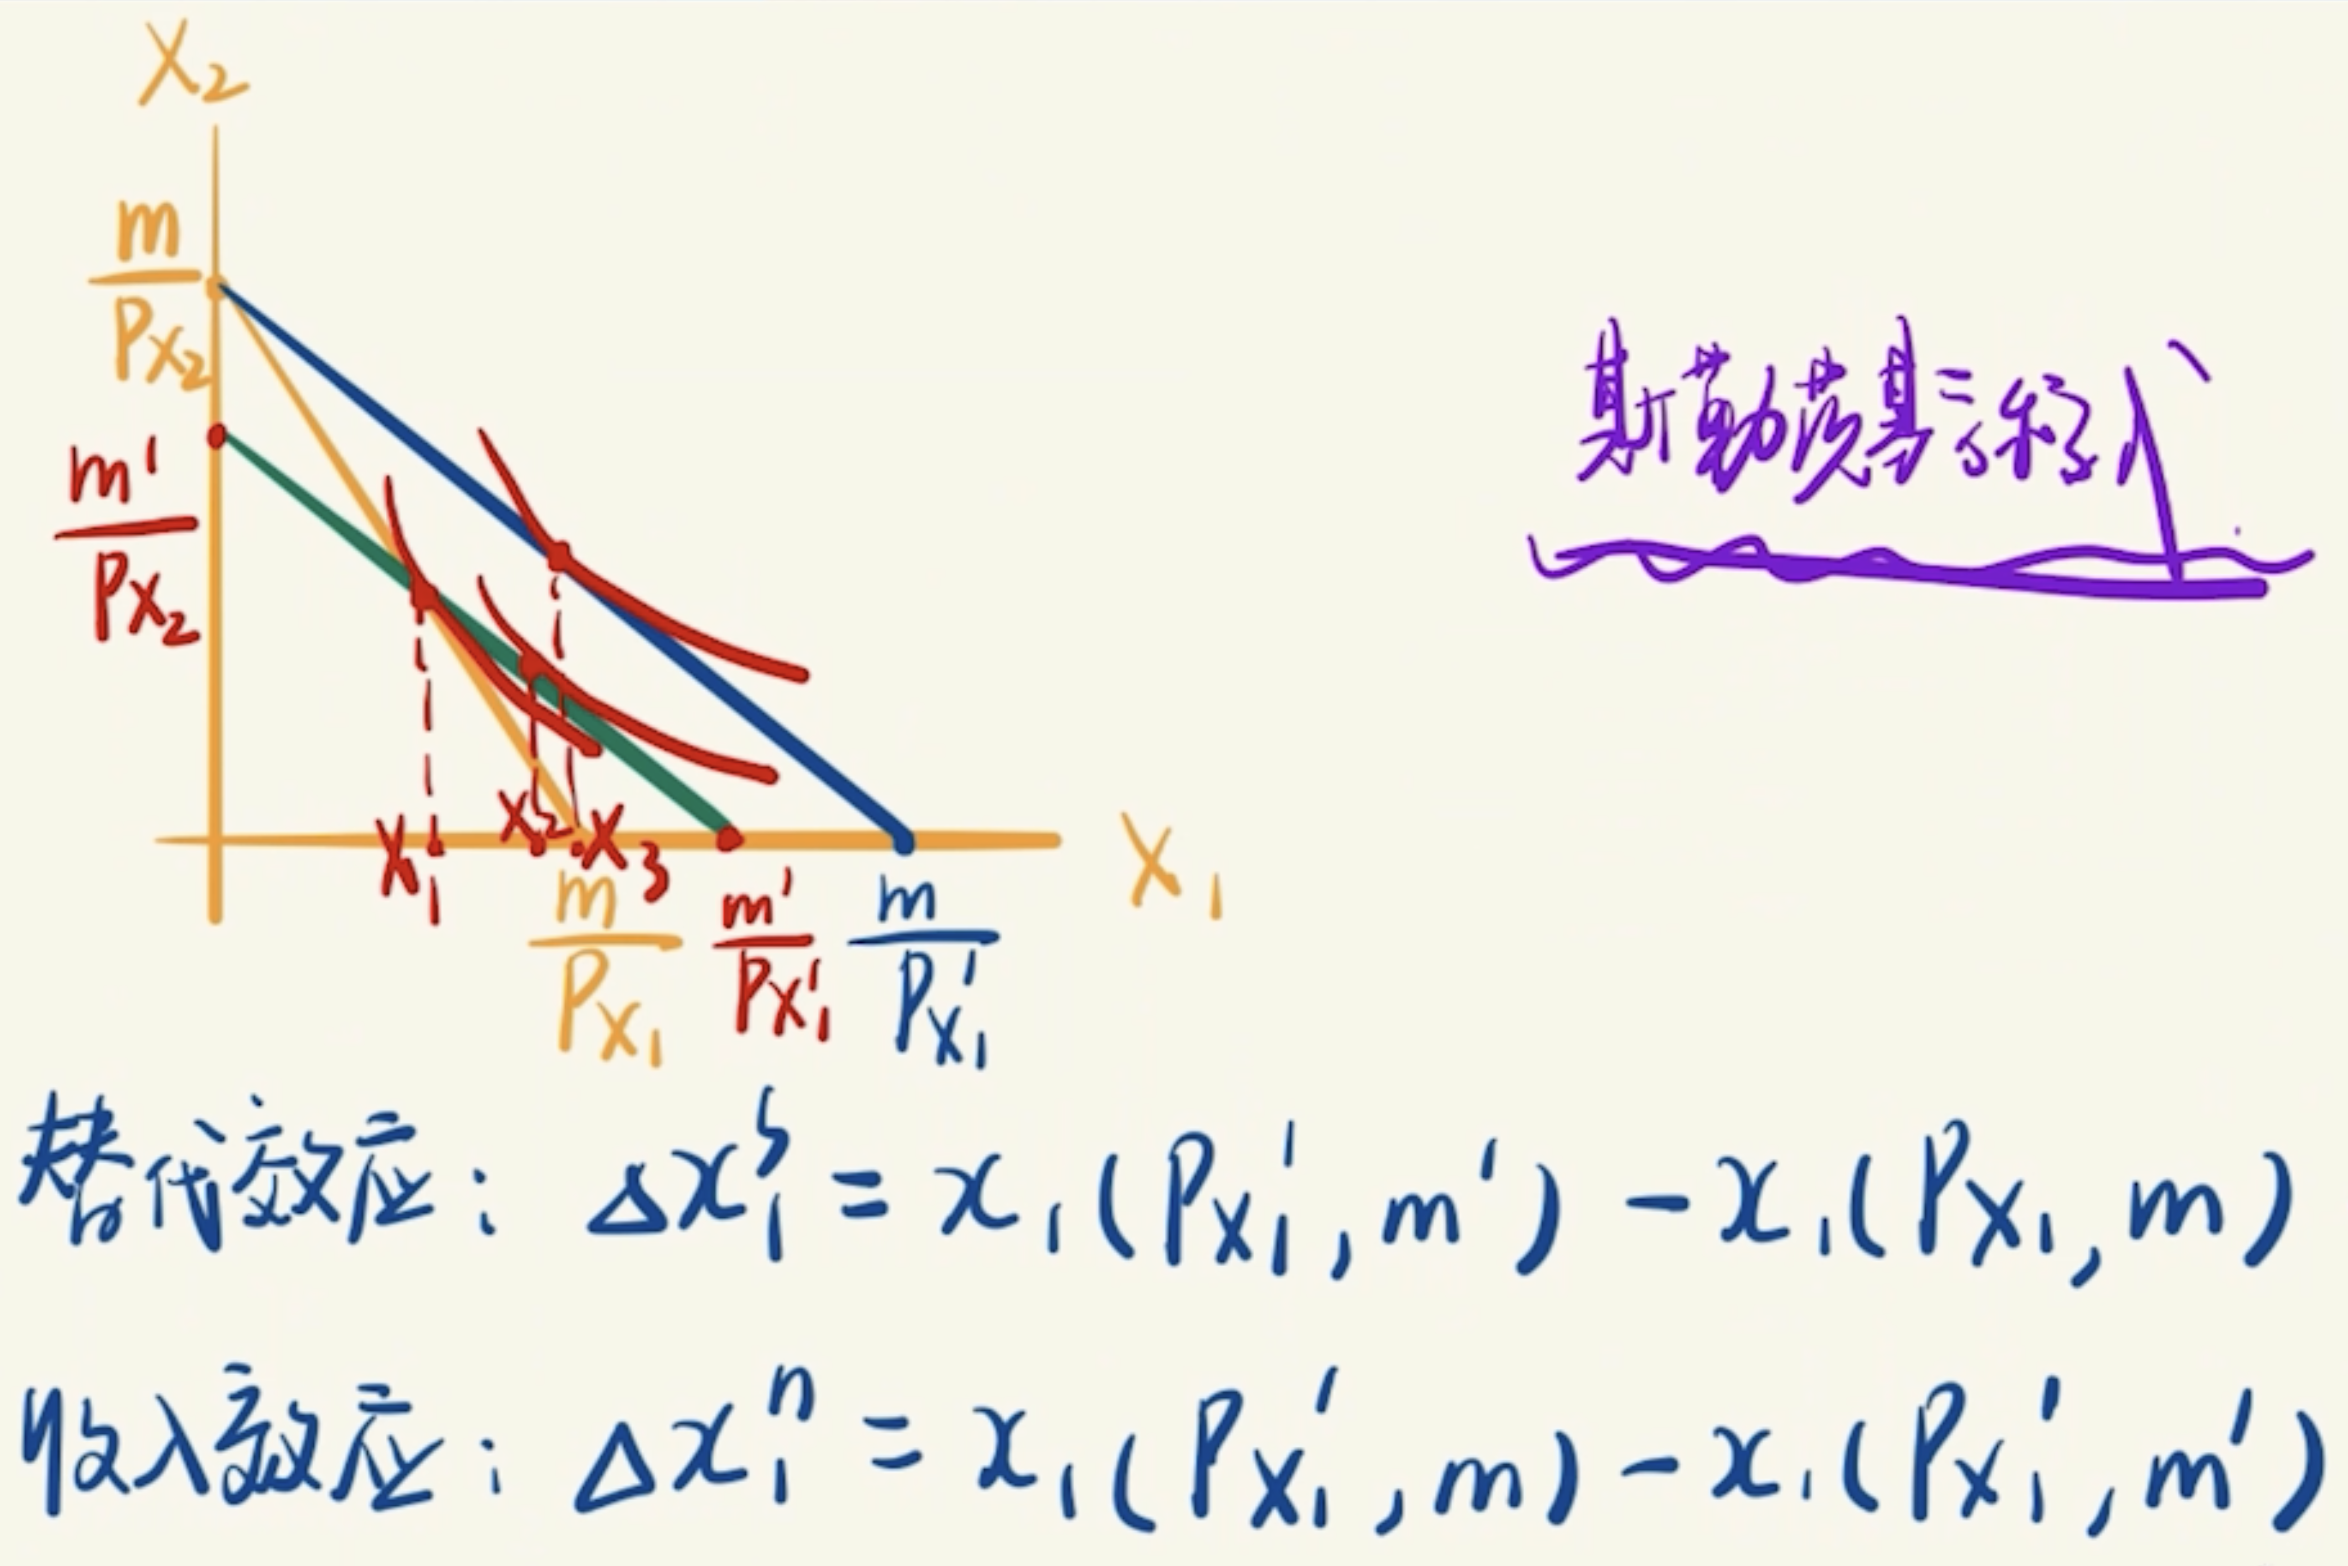 X₂
m/Px₂
m'/Px₂
斯勒茨基
x₁
x₂
x₃
X₁
m/Px₁
m'/Px₁'
m/Px₁'
替代效应: Δx₁ˢ = x₁(Px₁', m') - x₁(Px₁, m)
收入效应: Δx₁ⁿ = x₁(Px₁', m) - x₁(Px₁', m')